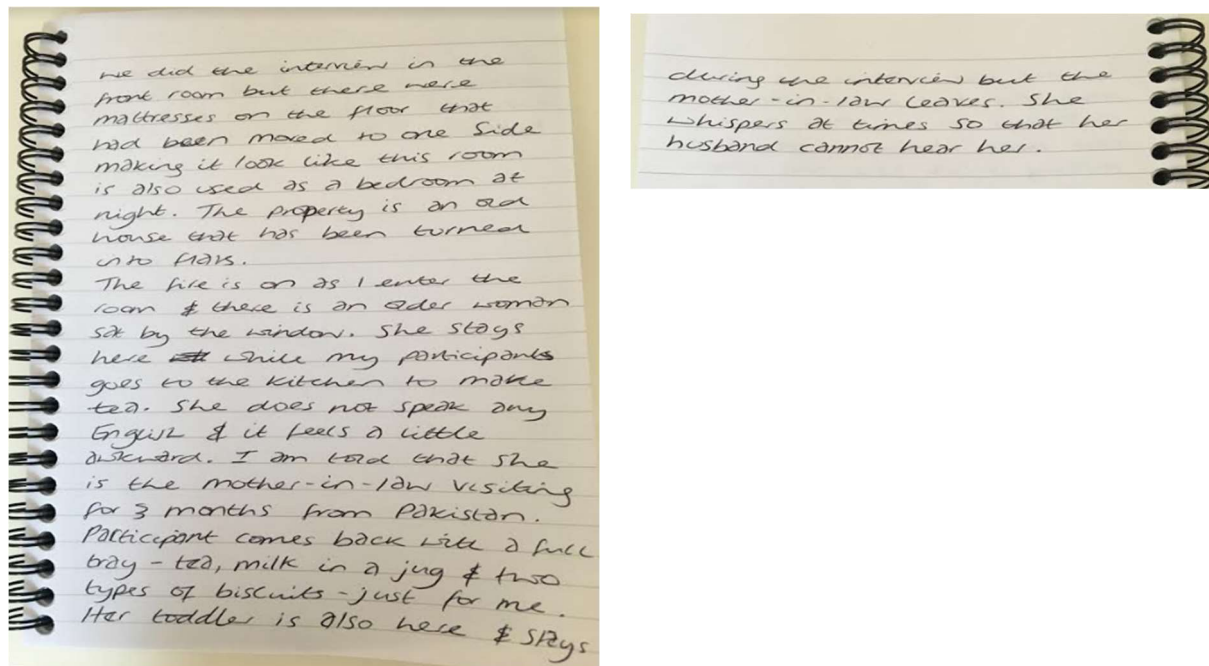 we did the interview in the
front room but there were
mattresses on the floor that
had been moved to one side
making it look like this room
is also used as a bedroom at
night. The property is an old
house that has been turned
into flats.
The fire is on as I enter the
room & there is an older woman
sat by the window. She stays
here while my participants
goes to the kitchen to make
tea. She does not speak any
English & it feels a little
awkward. I am told that she
is the mother-in-law visiting
for 3 months from Pakistan.
Participant comes back with a full
tray - tea, milk in a jug & two
types of biscuits - just for me.
Her toddler is also here & stays
during the interview but the
mother-in-law leaves. She
whispers at times so that her
husband cannot hear her.